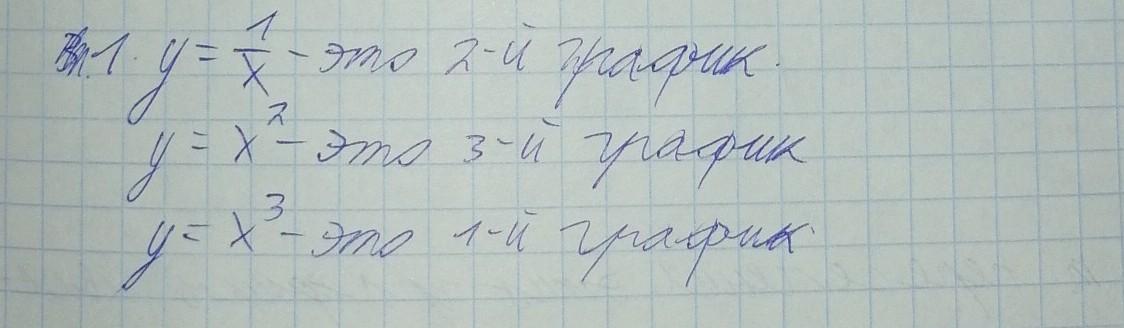 1. y = 1/x - это 2-й график.
y = x² - это 3-й график
y = x³ - это 1-й график